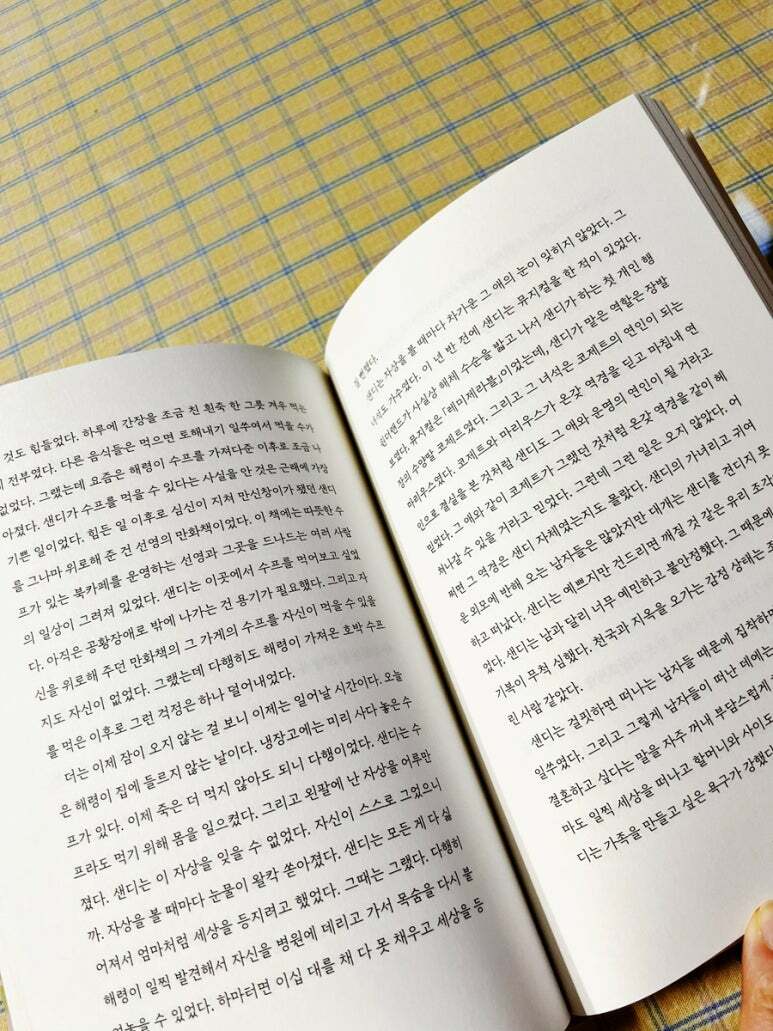 것도 힘들었다. 하루에 간장을 조금 친 흰죽 한 그릇 겨우 먹는
전부였다. 다른 음식들은 먹으면 토해내기 일쑤여서 먹을 수가
없었다. 그랬는데 요즘은 해령이 수프를 가져다준 이후로 조금 나
아졌다. 샌디가 수프를 먹을 수 있다는 사실을 안 것은 근래에 가장
기쁜 일이었다. 힘든 일 이후로 심신이 지쳐 만신창이가 됐던 샌디
를 그나마 위로해 준 건 선영의 만화책이었다. 이 책에는 따뜻한 수
프가 있는 북카페를 운영하는 선영과 그곳을 드나드는 여러 사람
의 일상이 그려져 있었다. 샌디는 이곳에서 수프를 먹어보고 싶었
다. 아직은 공황장애로 밖에 나가는 건 용기가 필요했다. 그리고 자
신을 위로해 주던 만화책의 그 가게의 수프를 자신이 먹을 수 있을
지도 자신이 없었다. 그랬는데 다행히도 해령이 가져온 호박 수프
를 먹은 이후로 그런 걱정은 하나 덜어내었다.
더는 이제 잠이 오지 않는 걸 보니 이제는 일어날 시간이다. 오늘
은 해령이 집에 들르지 않는 날이다. 냉장고에는 미리 사다 놓은 수
프가 있다. 이제 죽은 더 먹지 않아도 되니 다행이었다. 샌디는 수
프라도 먹기 위해 몸을 일으켰다. 그리고 왼팔에 난 자상을 어루만
졌다. 샌디는 이 자상을 잊을 수 없었다. 자신이 스스로 그었으니
까. 자상을 볼 때마다 눈물이 왈칵 쏟아졌다. 샌디는 모든 게 다 싫
어져서 엄마처럼 세상을 등지려고 했었다. 그때는 그랬다. 다행히
해령이 일찍 발견해서 자신을 병원에 데리고 가서 목숨을 다시 붙
여놓을 수 있었다. 하마터면 이십 대를 채 다 못 채우고 세상을 등
질 뻔했다.
샌디는 자상을 볼 때마다 차가운 그 애의 눈이 잊히지 않았다. 그
녀석도 가수였다. 이 년 반 전에 샌디는 뮤지컬을 한 적이 있었다.
원더랜드가 사실상 해체 수순을 밟고 나서 샌디가 하는 첫 개인 행
보였다. 뮤지컬은 「레미제라블」이었는데, 샌디가 맡은 역할은 장발
장의 수양딸 코제트였다. 그리고 그 녀석은 코제트의 연인이 되는
마리우스였다. 코제트와 마리우스가 온갖 역경을 딛고 마침내 연
인으로 결실을 본 것처럼 샌디도 그 애와 운명의 연인이 될 거라고
믿었다. 그 애와 같이 코제트가 그랬던 것처럼 온갖 역경을 같이 헤
쳐나갈 수 있을 거라고 믿었다. 그런데 그런 일은 오지 않았다. 어
쩌면 그 역경은 샌디 자체였는지도 몰랐다. 샌디의 가녀리고 귀여
운 외모에 반해 오는 남자들은 많았지만 대개는 샌디를 견디지 못
하고 떠났다. 샌디는 예쁘지만 건드리면 깨질 것 같은 유리 조각
었다. 샌디는 남과 달리 너무 예민하고 불안정했다. 그 때문에
기복이 무척 심했다. 천국과 지옥을 오가는 감정 상태는
린 사람 같았다.
샌디는 걸핏하면 떠나는 남자들 때문에 집착하면
일쑤였다. 그리고 그렇게 남자들이 떠난 데에는
결혼하고 싶다는 말을 자주 꺼내 부담스럽게
마도 일찍 세상을 떠나고 할머니와 사이도
디는 가족을 만들고 싶은 욕구가 강했다